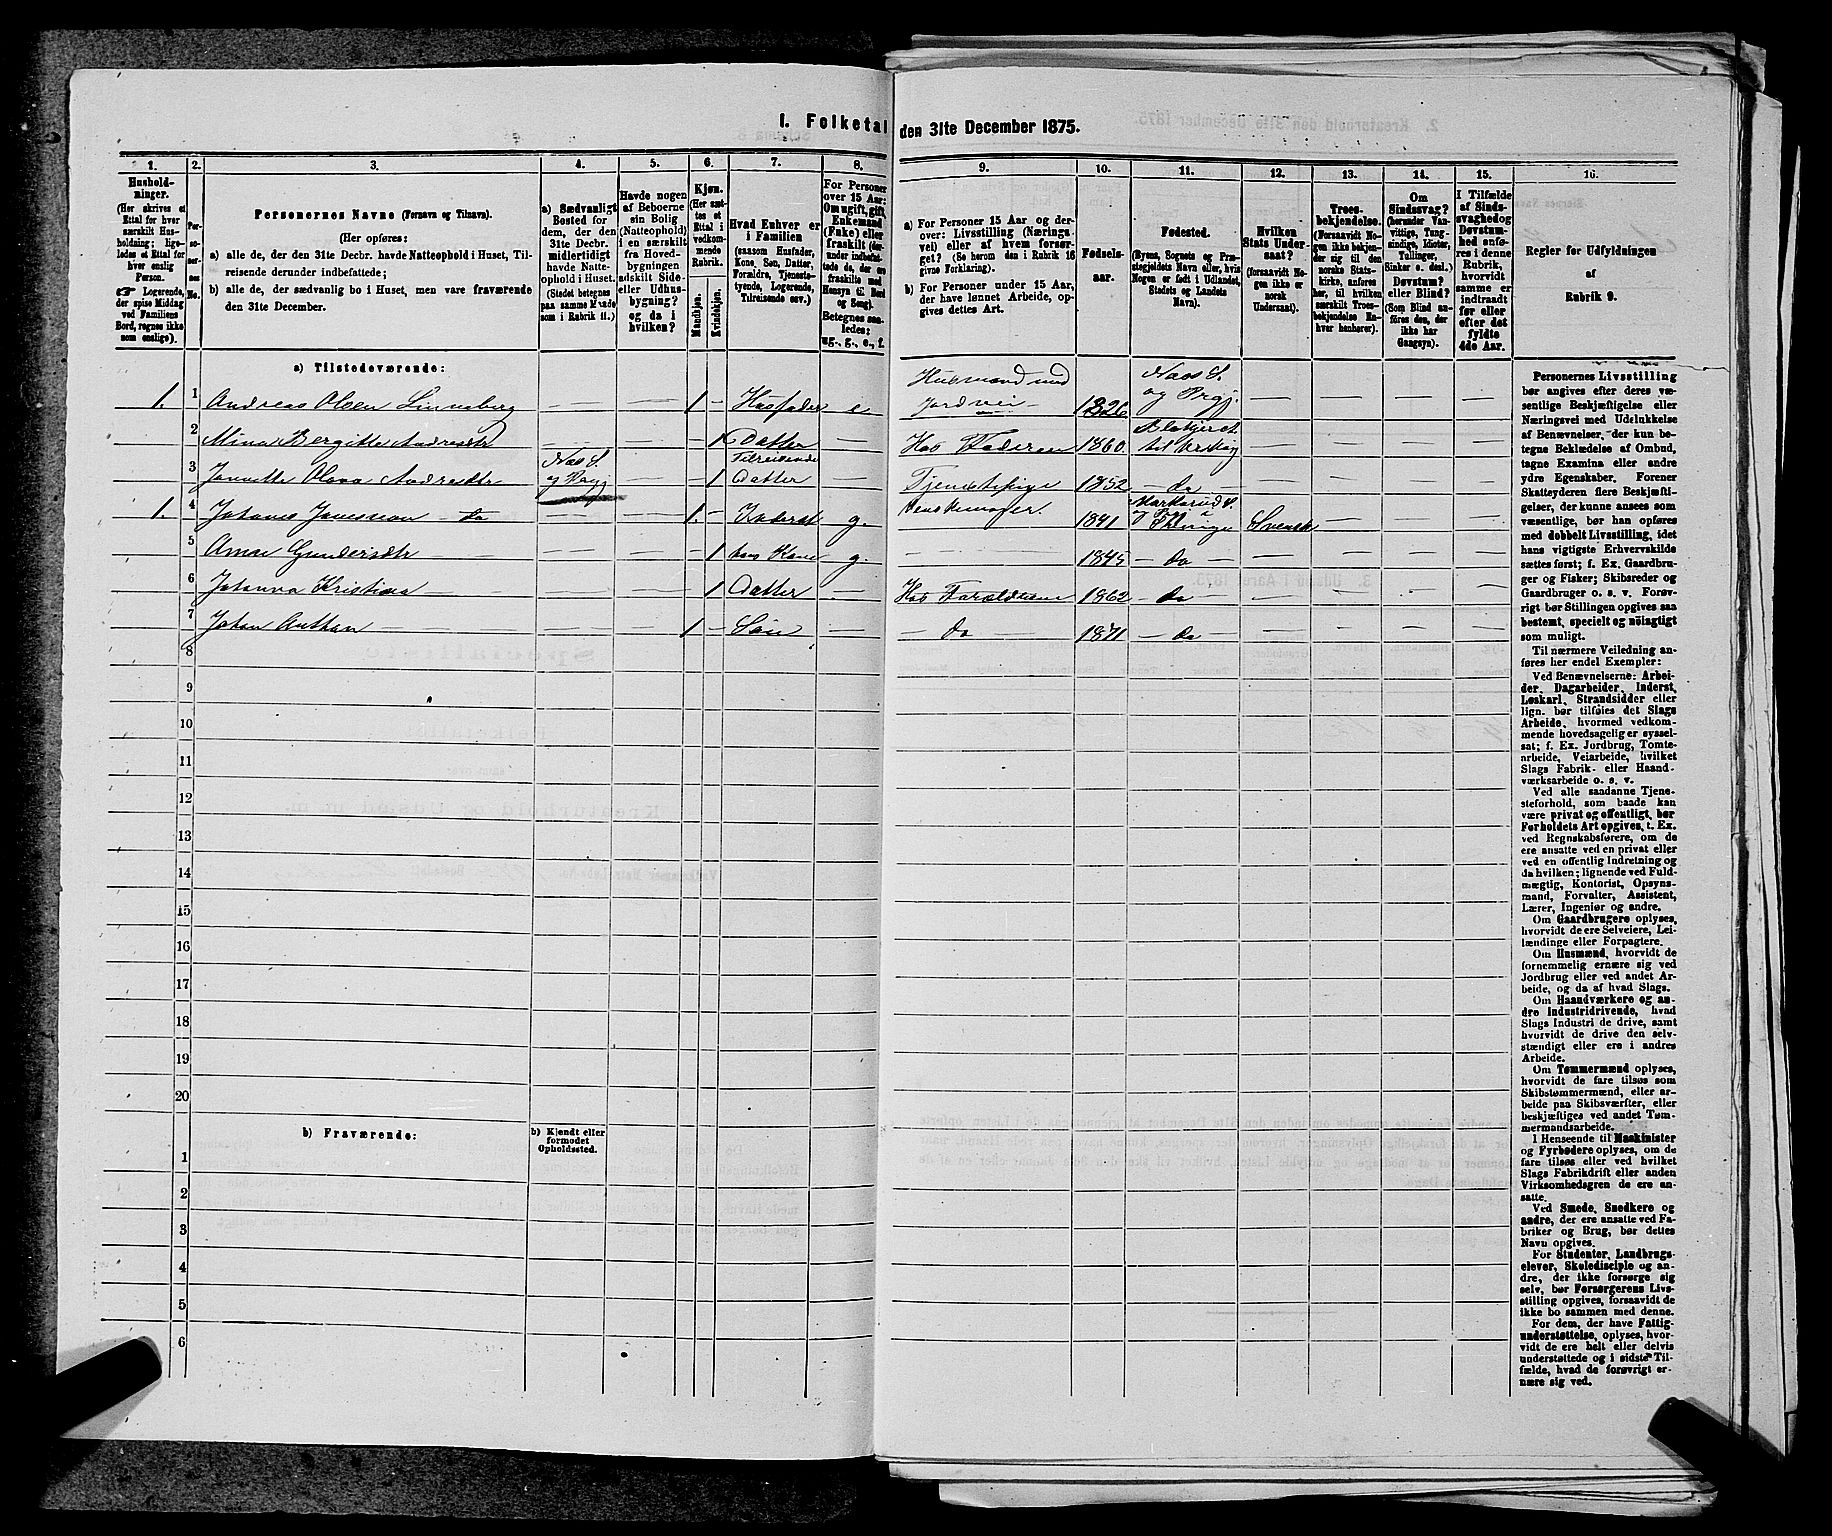 I. Folketal den 31te December 1875.
1. 2. 3. 4. 5. 6. 7. 8. 9. 10. 11. 12. 13. 14. 15. 16.
Husholdninger.
(Her skrives et Ettal for hver særskilt Husholdning; ligeledes et Ettal for hver enslig Person.
☞ Logerende, der spise Middag ved Familiens Bord, regnes ikke som enslige).
Personernes No.
Personernes Navne (Fornavn og Tilnavn).
(Her opføres:
a) alle de, der den 31te Decbr. havde Natteophold i Huset, Tilreisende derunder indbefattede;
b) alle de, der sædvanlig bo i Huset, men vare fraværende den 31te December.
a) Sædvanligt Bosted for dem, der den 31te Decbr. midlertidigt havde Natteophold i Huset.
(Stedet betegnes paa samme Maade som i Rubrik 11.)
Havde nogen af Beboerne sin Bolig (Natteophold) i en særskilt fra Hovedbygningen adskilt Side- eller Udhusbygning? og da i hvilken?
Kjøn. (Her sættes et Ettal i vedkommende Rubrik.
Mandkjøn.
Kvindekjøn.
Hvad Enhver er i Familien
(saasom Husfader, Kone, Søn, Datter, Forældre, Tjenestetyende, Logerende, Tilreisende osv.)
For Personer over 15 Aar: Om ugift, gift, Enkemand (Enke) eller fraskilt (derunder indbefattede de, der ere fraskilte med Hensyn til Bord og Seng).
Betegnes saaledes:
ug., g., e., f.
a) For Personer 15 Aar og derover: Livsstilling (Næringsvei) eller af hvem forsørget? (Se herom den i Rubrik 16 givne Forklaring).
b) For Personer under 15 Aar, der have lønnet Arbeide, opgives dettes Art.
Fødselsaar.
Fødested.
(Byens, Sognets og Præstegjeldets Navn eller, hvis Nogen er født i Udlandet, Stedets og Landets Navn).
Hvilken Stats Undersaat?
(forsaavidt Nogen ikke er norsk Undersaat).
Troesbekjendelse.
(Forsaavidt Nogen ikke bekjender sig til den norske Statskirke, anføres her, til hvilken særskilt Troesbekjendelse Enhver henhører).
Om Sindssvag? (herunder Vanvittige, Tungsindige, Idioter, Tullinger, Sinker o. desl.) Døvstum? eller Blind?
(Som Blind anføres den, der ikke har Gangsyn).
I Tilfælde af Sindssvaghed og Døvstumhed anføres i denne Rubrik, hvorvidt samme er indtraadt før eller efter det fyldte 4de Aar.
Regler for Udfyldningen
af
Rubrik 9.
a) Tilstedeværende:
1. 1 Andreas Olsen Linneberg — — 1 — Husfader e Husmand med Jordvei 1826 Næs S. og Prgj. — — — —
2 Mina Bergitte Andreasdtr — — — 1 Datter — Hos Faderen 1860 — — — —
3 Olava Næs S. — — 1 Tilreisende Datter — Tjenestepige 1852 — do — — — — —
1. 4 Johanes — — 1. — Inderst g. 1841 Svensk — — —
5 Gundersdtr — — — 1 hans Kone g. — 1845 — do — — — — —
6 Johanna Kristina — — — 1 Datter — Hos Forældrene 1862 — do — — — — —
7 Johan — — 1 — Søn — — do — 1871 — do — — — — —
8
9
10
11
12
13
14
15
16
17
18
19
20
b) Fraværende:
b) Kjendt eller formodet Opholdssted.
1
2
3
4
5
6
Personernes Livsstilling
bør angives efter deres væ-
sentlige Beskjæftigelse eller
Næringsvei med Udelukkelse
af Benævnelser, der kun be-
tegne Beklædelse af Ombud,
tagne Examina eller andre
ydre Egenskaber. Forener
Skatteyderen flere Beskjæfti-
gelser, der kunne ansees som
væsentlige, bør han opføres
med dobbelt Livsstilling, idet
hans vigtigste Erhvervskilde
sættes først; f. Ex. Gaardbru-
ger og Fisker; Skibsreder og
Gaardbruger o. s. v. Forøv-
rigt bør Stillingen opgives saa
bestemt, specielt og nøiagtigt
som muligt.
Til nærmere Veiledning an-
føres her endel Exempler:
Ved Benævnelserne: Arbei-
der, Dagarbeider, Inderst,
Løskarl, Strandsidder eller
lign. bør tilføies det Slags
Arbeide, hvormed vedkom-
mende hovedsagelig er syssel-
sat; f. Ex. Jordbrug, Tomte-
arbeide, Veiarbeide, hvilket
Slags Fabrik- eller Haand-
værksarbeide o. s. v.
Ved alle saadanne Tjene-
steforhold, som baade kan
være privat og offentligt, bør
Forholdets Art opgives, f. Ex.
ved Regnskabsførere, om de
ere ansatte ved en privat eller
ved en offentlig Indretning og
da hvilken; lignende ved Fuld-
mægtig, Kontorist, Opsyns-
mand, Forvalter, Assistent,
Lærer, Ingeniør og andre.
Om Gaardbrugere oplyses,
hvorvidt de ere Selveiere, Lei-
lændinge eller Forpagtere.
Om Husmænd, hvorvidt de
fornemmelig ernære sig ved
Jordbrug eller ved andet Ar-
beide, og da af hvad Slags.
Om Haandværkere og an-
dre Industridrivende, hvad
Slags Industri de drive, samt
hvorvidt de drive den selv-
stændigt eller ere i andres
Arbeide.
Om Tømmermænd oplyses,
hvorvidt de fare tilsøs som
Skibstømmermænd, eller ar-
beide paa Skibsværfter, eller
beskjæftiges ved andet Tøm-
mermandsarbeide.
I Henseende til Maskinister
og Fyrbødere oplyses, om de
fare tilsøs eller ved hvilket
Slags Fabrikdrift eller anden
Virksomhedsgren de ere an-
satte.
Ved Smede, Snedkere og
andre, der ere ansatte ved Fa-
briker og Brug, bør dettes
Navn opgives.
For Studenter, Landbrugs-
elever, Skoledisciple og an-
dre, der ikke forsørge sig
selv, bør Forsørgerens Livs-
stilling opgives, forsaavidt de
ikke bo sammen med denne.
For dem, der have Fattig-
understøttelse, oplyses, hvor-
vidt de ere helt eller delvis
understøttede og i sidste Til-
fælde, hvad de forøvrigt er-
nære sig ved.